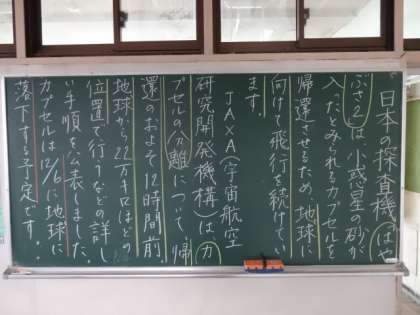 日本の探査機「はや
ぶさ2」は、小惑星の砂が
入ったとみられるカプセルを
帰還させるため、地球に
向けて飛行を続けてい
ます。
JAXA(宇宙航空
研究開発機構)は、カ
プセルの分離について、帰
還のおよそ12時間前、
地球から22万キロほどの
位置で行うなどの詳し
い手順を公表しました。
カプセルは12/6に地球に
落下する予定です。